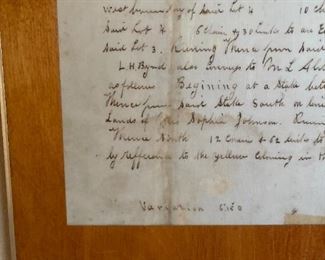 West boundary of said Lot 4 10 Ch
Said Lot 4 5 Chain & 30 Links to an Ea
Said Lot 3. Running Thence from Said
L. H. Byrd also Conveys to M L
as follows Begining at a Stake betw
Thence from Said Stake South on line
Lands of Mrs Sophia Johnson. Runn
Thence North 12 Chain & 62 Links to
by Refference to the yellow Coloring in th
Variation